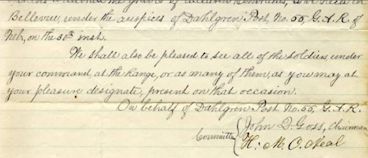 Bellevue, under the auspices of Dahlgren Post No. 55, G.A.R. of
Neb, on the 30th inst.
We shall also be pleased to see all of the soldiers under
your command at the Range, or as many of them, as you may at
your pleasure designate, present on that occasion.
On behalf of Dahlgren Post No. 55, G.A.R.
Committee { John Q. Goss, Chairman
H. M. C. Neal